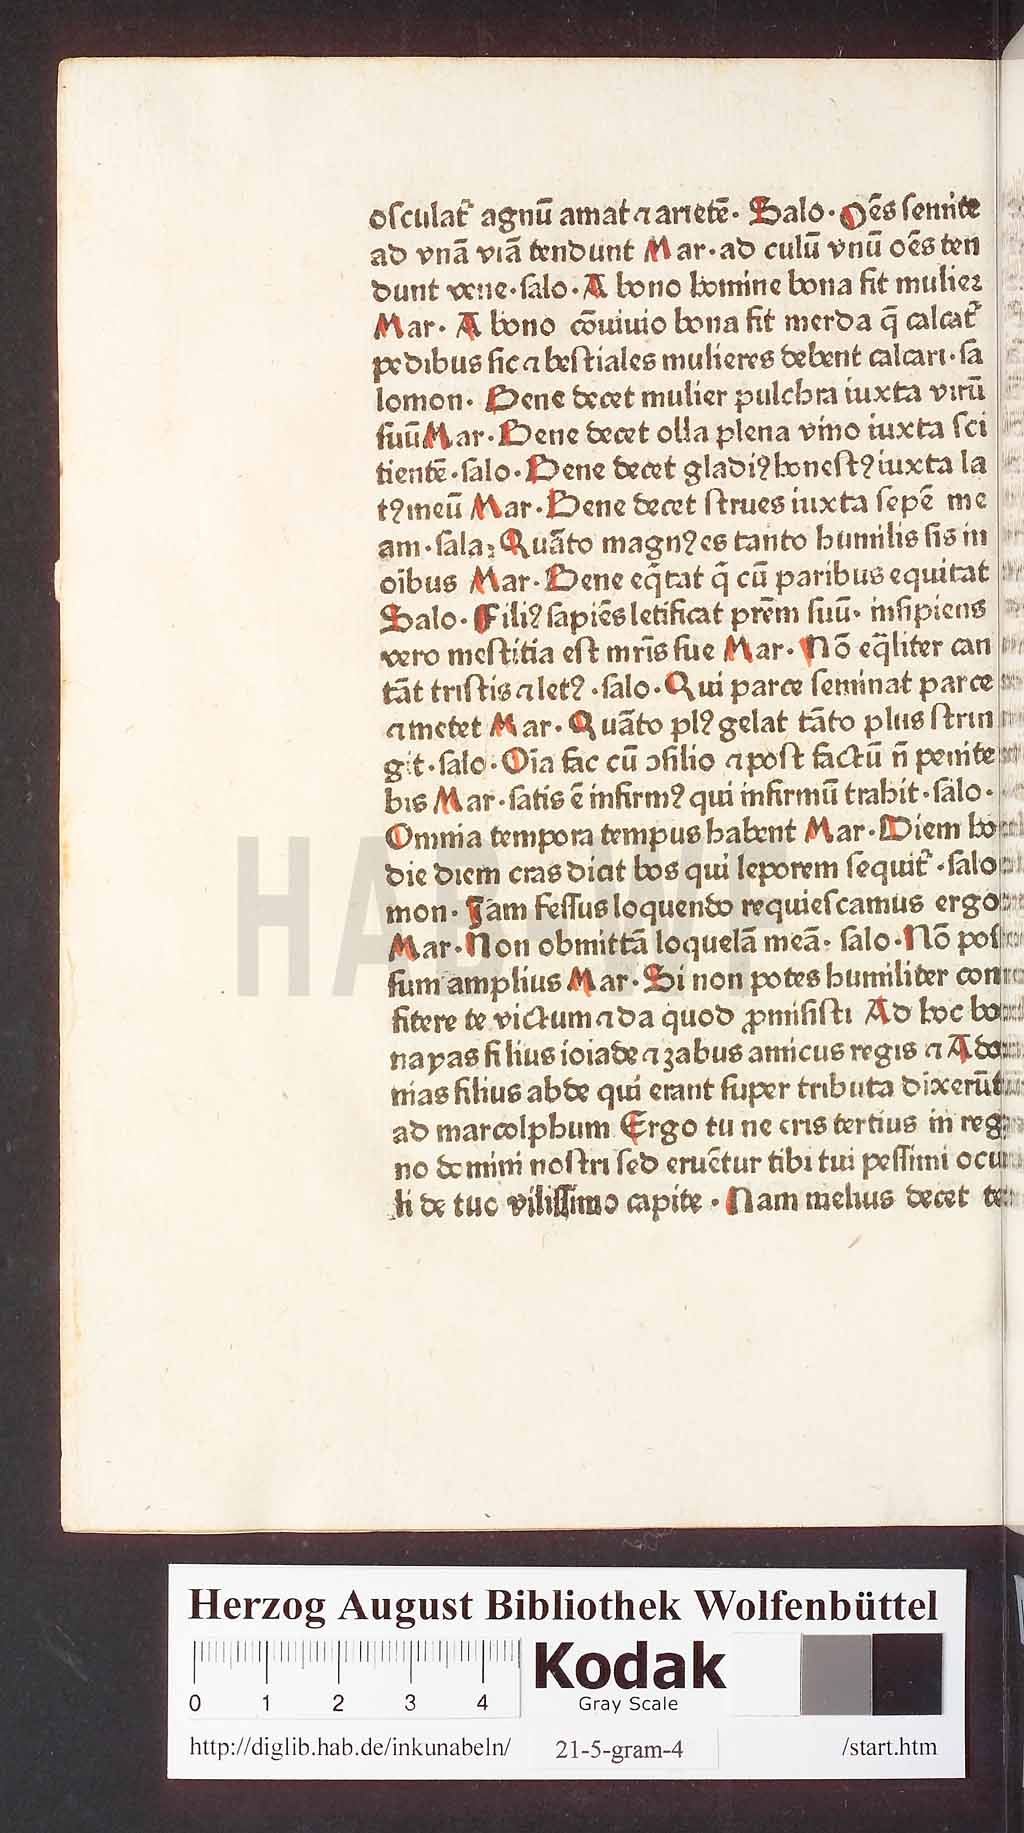 osculat᷑ agnū amat ⁊ arietē. Salo. Oēs semite
ad vnā viā tendunt Mar. ad culū vnū oēs ten
dunt vene. salo. A bono homine bona fit mulier
Mar. A bono cōuiuio bona fit merda q̄ calcat᷑
pedibus sic ⁊ bestiales mulieres debent calcari. sa
lomon. Bene decet mulier pulchra iuxta virū
suū Mar. Bene decet olla plena vino iuxta sci
tientē. salo. Bene decet gladiꝰ honestꝰ iuxta la
tꝰ meū Mar. Bene decet strues iuxta sepē me
am. sala: Quāto magnꝰ es tanto humilis sis in
oībus Mar. Bene eq̄tat q̄ cū paribus equitat
Salo. Filiꝰ sapiēs letificat prēm suū. insipiens
vero mestitia est mr̄is sue Mar. Nō eq̄liter can
tāt tristis ⁊ letꝰ. salo. Qui parce seminat parce
⁊ metet Mar. Quāto plꝰ gelat tāto plus strin
git. salo. Oīa fac cū ꝯsilio ⁊ post factū n̄ penite
bis Mar. satis ē infirmꝰ qui infirmū trahit. salo.
Omnia tempora tempus habent Mar. Diem ho
die diem cras dicit bos qui leporem sequit᷑. salo
mon. Jam fessus loquendo requiescamus ergo
Mar. Non obmittā loquelā meā. salo. Nō pos
sum amplius Mar. Si non potes humiliter con
fitere te victum ⁊ da quod ꝓmisisti Ad hoc bo
nayas filius ioiade ⁊ zabus amicus regis ⁊ Ado
nias filius abde qui erant super tributa dixerūt
ad marcolphum Ergo tu ne eris tertius in reg
no domini nostri sed eruētur tibi tui pessimi ocu
li de tuo vilissimo capite. Nam melius decet te
HAB WF
Herzog August Bibliothek Wolfenbüttel
0 1 2 3 4
Kodak
Gray Scale
http://diglib.hab.de/inkunabeln/ 21-5-gram-4 /start.htm